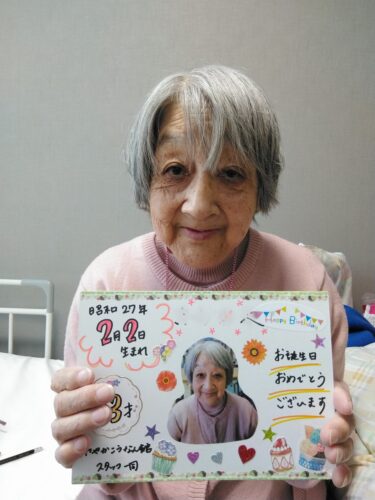 昭和27年
2月2日
生まれ
Happy Birthday
お誕生日
おめでとう
ございます
3才
スタッフ一同